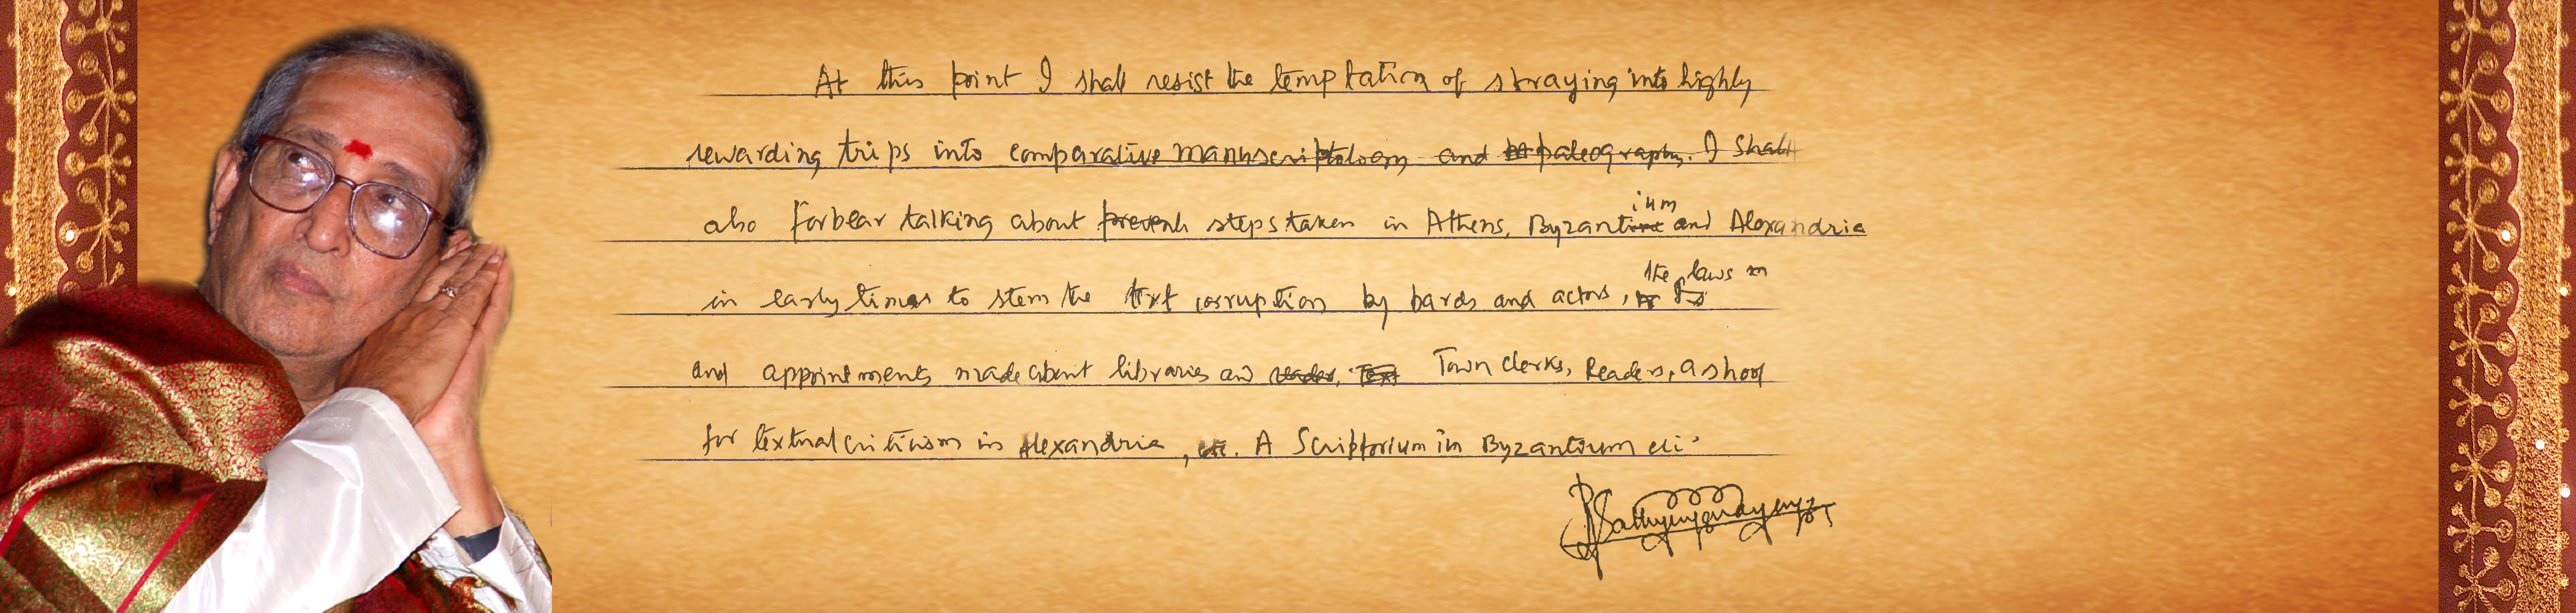 At this point I shall resist the temptation of straying into highly
rewarding trips into comparative manuscriptology and paleography. I shall
also forbear talking about steps taken in Athens, Byzantium and Alexandria
in early times to stem the text corruption by bards and actors, the laws
and appointments made about libraries and Town clerks, Readers, a shool
for textual criticism in Alexandria, etc. A Scriptorium in Byzantium etc.